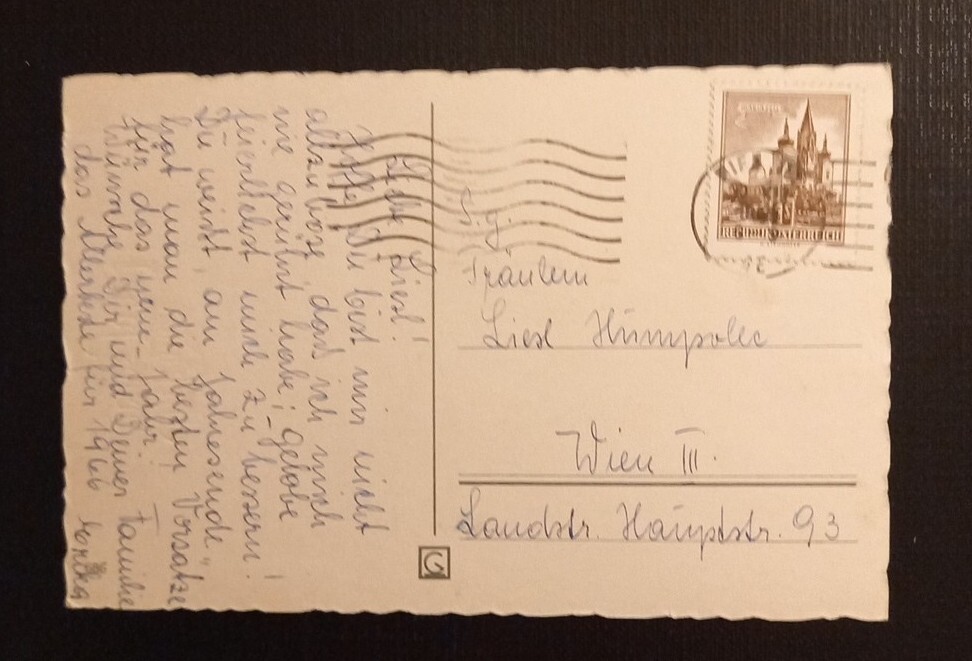 Liebe Liesl!
Hoffe Du bist mir nicht
allzu böse, dass ich mich
nie gerührt habe; gelobe
feierlichst mich zu bessern!
Du weisst, am Jahresende
hat man die besten Vorsätze
für das neue Jahr.
Wünsche Dir und Deiner Familie
das Allerbeste für 1966
S.g.
Fräulein
Liesl Humpolec
Wien III.
Landstr. Hauptstr. 93
REPUBLIK ÖSTERREICH
G